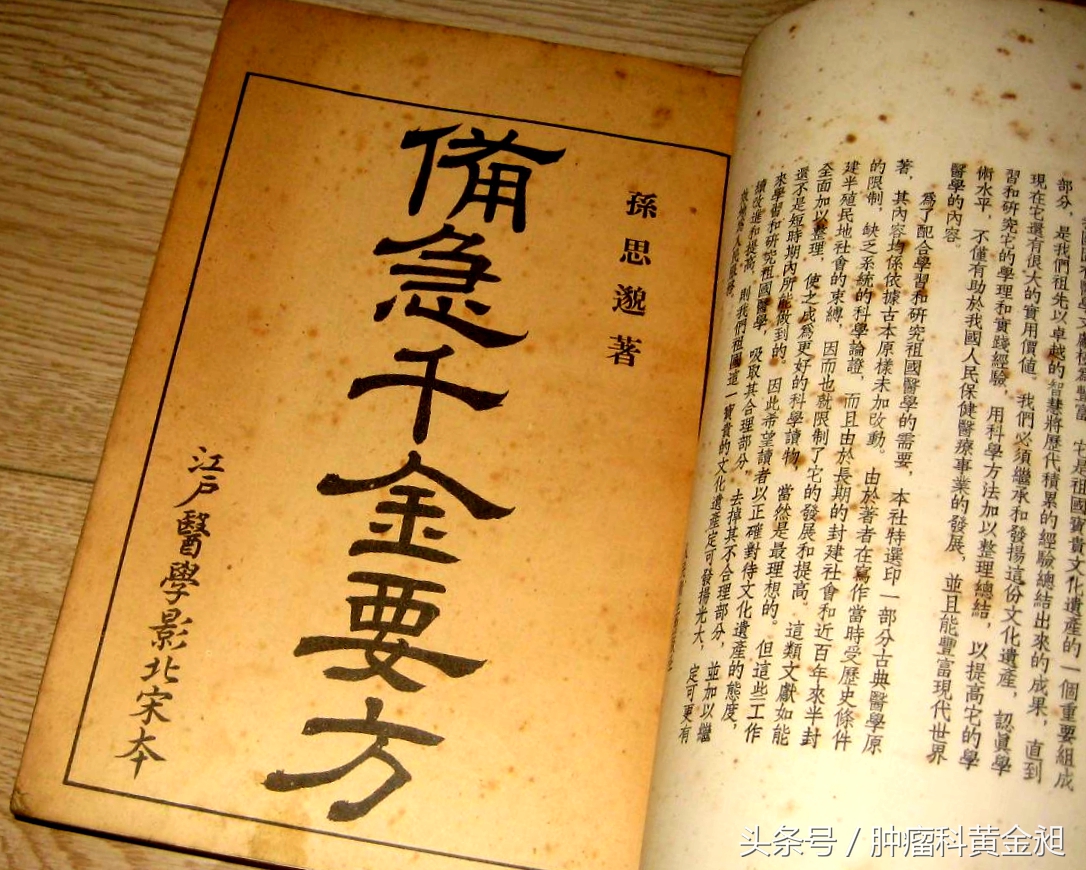 它是祖國寶貴文化遺產的一個重要組成
部分，是我們祖先以卓越的智慧將歷代積累的經驗總結出來的成果，直到
現在它還有很大的實用價值。我們必須繼承和發揚這份文化遺產，認眞學
習和研究它的學理和實踐經驗，用科學方法加以整理總結，以提高它的學
術水平，不僅有助於我國人民保健醫療事業的發展，並且能豐富現代世界
醫學的內容。
爲了配合學習和研究祖國醫學的需要，本社特選印一部分古典醫學原
著，其內容均係依據古本原樣未加改動。由於著者在寫作當時受歷史條件
的限制，缺乏系統的科學論證，而且由於長期的封建社會和近百年來半封
建半殖民地社會的束縛，因而也就限制了它的發展和提高。這類文獻如能
全面加以整理，使之成爲更好的科學讀物，當然是最理想的。但這些工作
還不是短時期內所能做到的，因此希望讀者以正確對待文化遺產的態度，
來學習和研究祖國醫學，吸取其合理部分，去掉其不合理部分，並加以繼
續改進和提高，則我們祖國這一寶貴的文化遺產定可發揚光大，定可更有
人民服務。
孫思邈著
備急千金要方
江戶醫學影北宋本
头条号 / 肿瘤科黄金昶